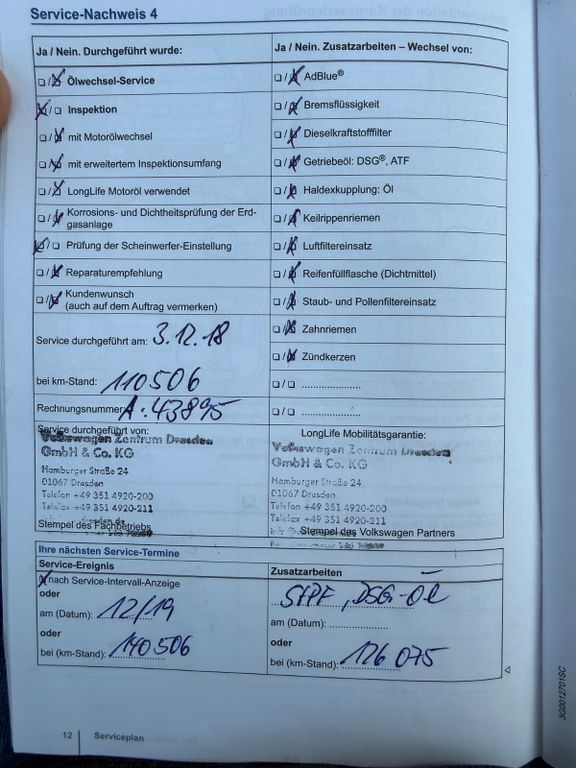 Service-Nachweis 4
Ja / Nein. Durchgeführt wurde:
☐ /☒ Ölwechsel-Service
☒ /☐ Inspektion
☐ /☒ mit Motorölwechsel
☐ /☒ mit erweitertem Inspektionsumfang
☐ /☒ LongLife Motoröl verwendet
☐ /☒ Korrosions- und Dichtheitsprüfung der Erd-
gasanlage
☒ /☐ Prüfung der Scheinwerfer-Einstellung
☐ /☒ Reparaturempfehlung
☐ /☒ Kundenwunsch
(auch auf dem Auftrag vermerken)
Service durchgeführt am: 3.12.18
bei km-Stand: 110506
Rechnungsnummer: A:43895
Service durchgeführt von:
Volkswagen Zentrum Dresden
GmbH & Co. KG
Hamburger Straße 24
01067 Dresden
Telefon +49 351 4920-200
Telefax +49 351 4920-211
Stempel des Fachbetriebs
Ja / Nein. Zusatzarbeiten – Wechsel von:
☐ /☒ AdBlue®
☐ /☒ Bremsflüssigkeit
☐ /☒ Dieselkraftstofffilter
☐ /☒ Getriebeöl: DSG®, ATF
☐ /☒ Haldexkupplung: Öl
☐ /☒ Keilrippenriemen
☐ /☒ Luftfiltereinsatz
☐ /☒ Reifenfüllflasche (Dichtmittel)
☐ /☒ Staub- und Pollenfiltereinsatz
☐ /☒ Zahnriemen
☐ /☒ Zündkerzen
☐ /☐ .....................
☐ /☐ .....................
LongLife Mobilitätsgarantie:
Volkswagen Zentrum Dresden
GmbH & Co. KG
Hamburger Straße 24
01067 Dresden
Telefon +49 351 4920-200
Telefax +49 351 4920-211
Stempel des Volkswagen Partners
Ihre nächsten Service-Termine
Service-Ereignis
☒ nach Service-Intervall-Anzeige
oder
am (Datum): 12/19
oder
bei (km-Stand): 140506
Zusatzarbeiten
StPF, DSG-Öl
am (Datum): .....................
oder
bei (km-Stand): 126 075
12 Serviceplan
3G0012701SC